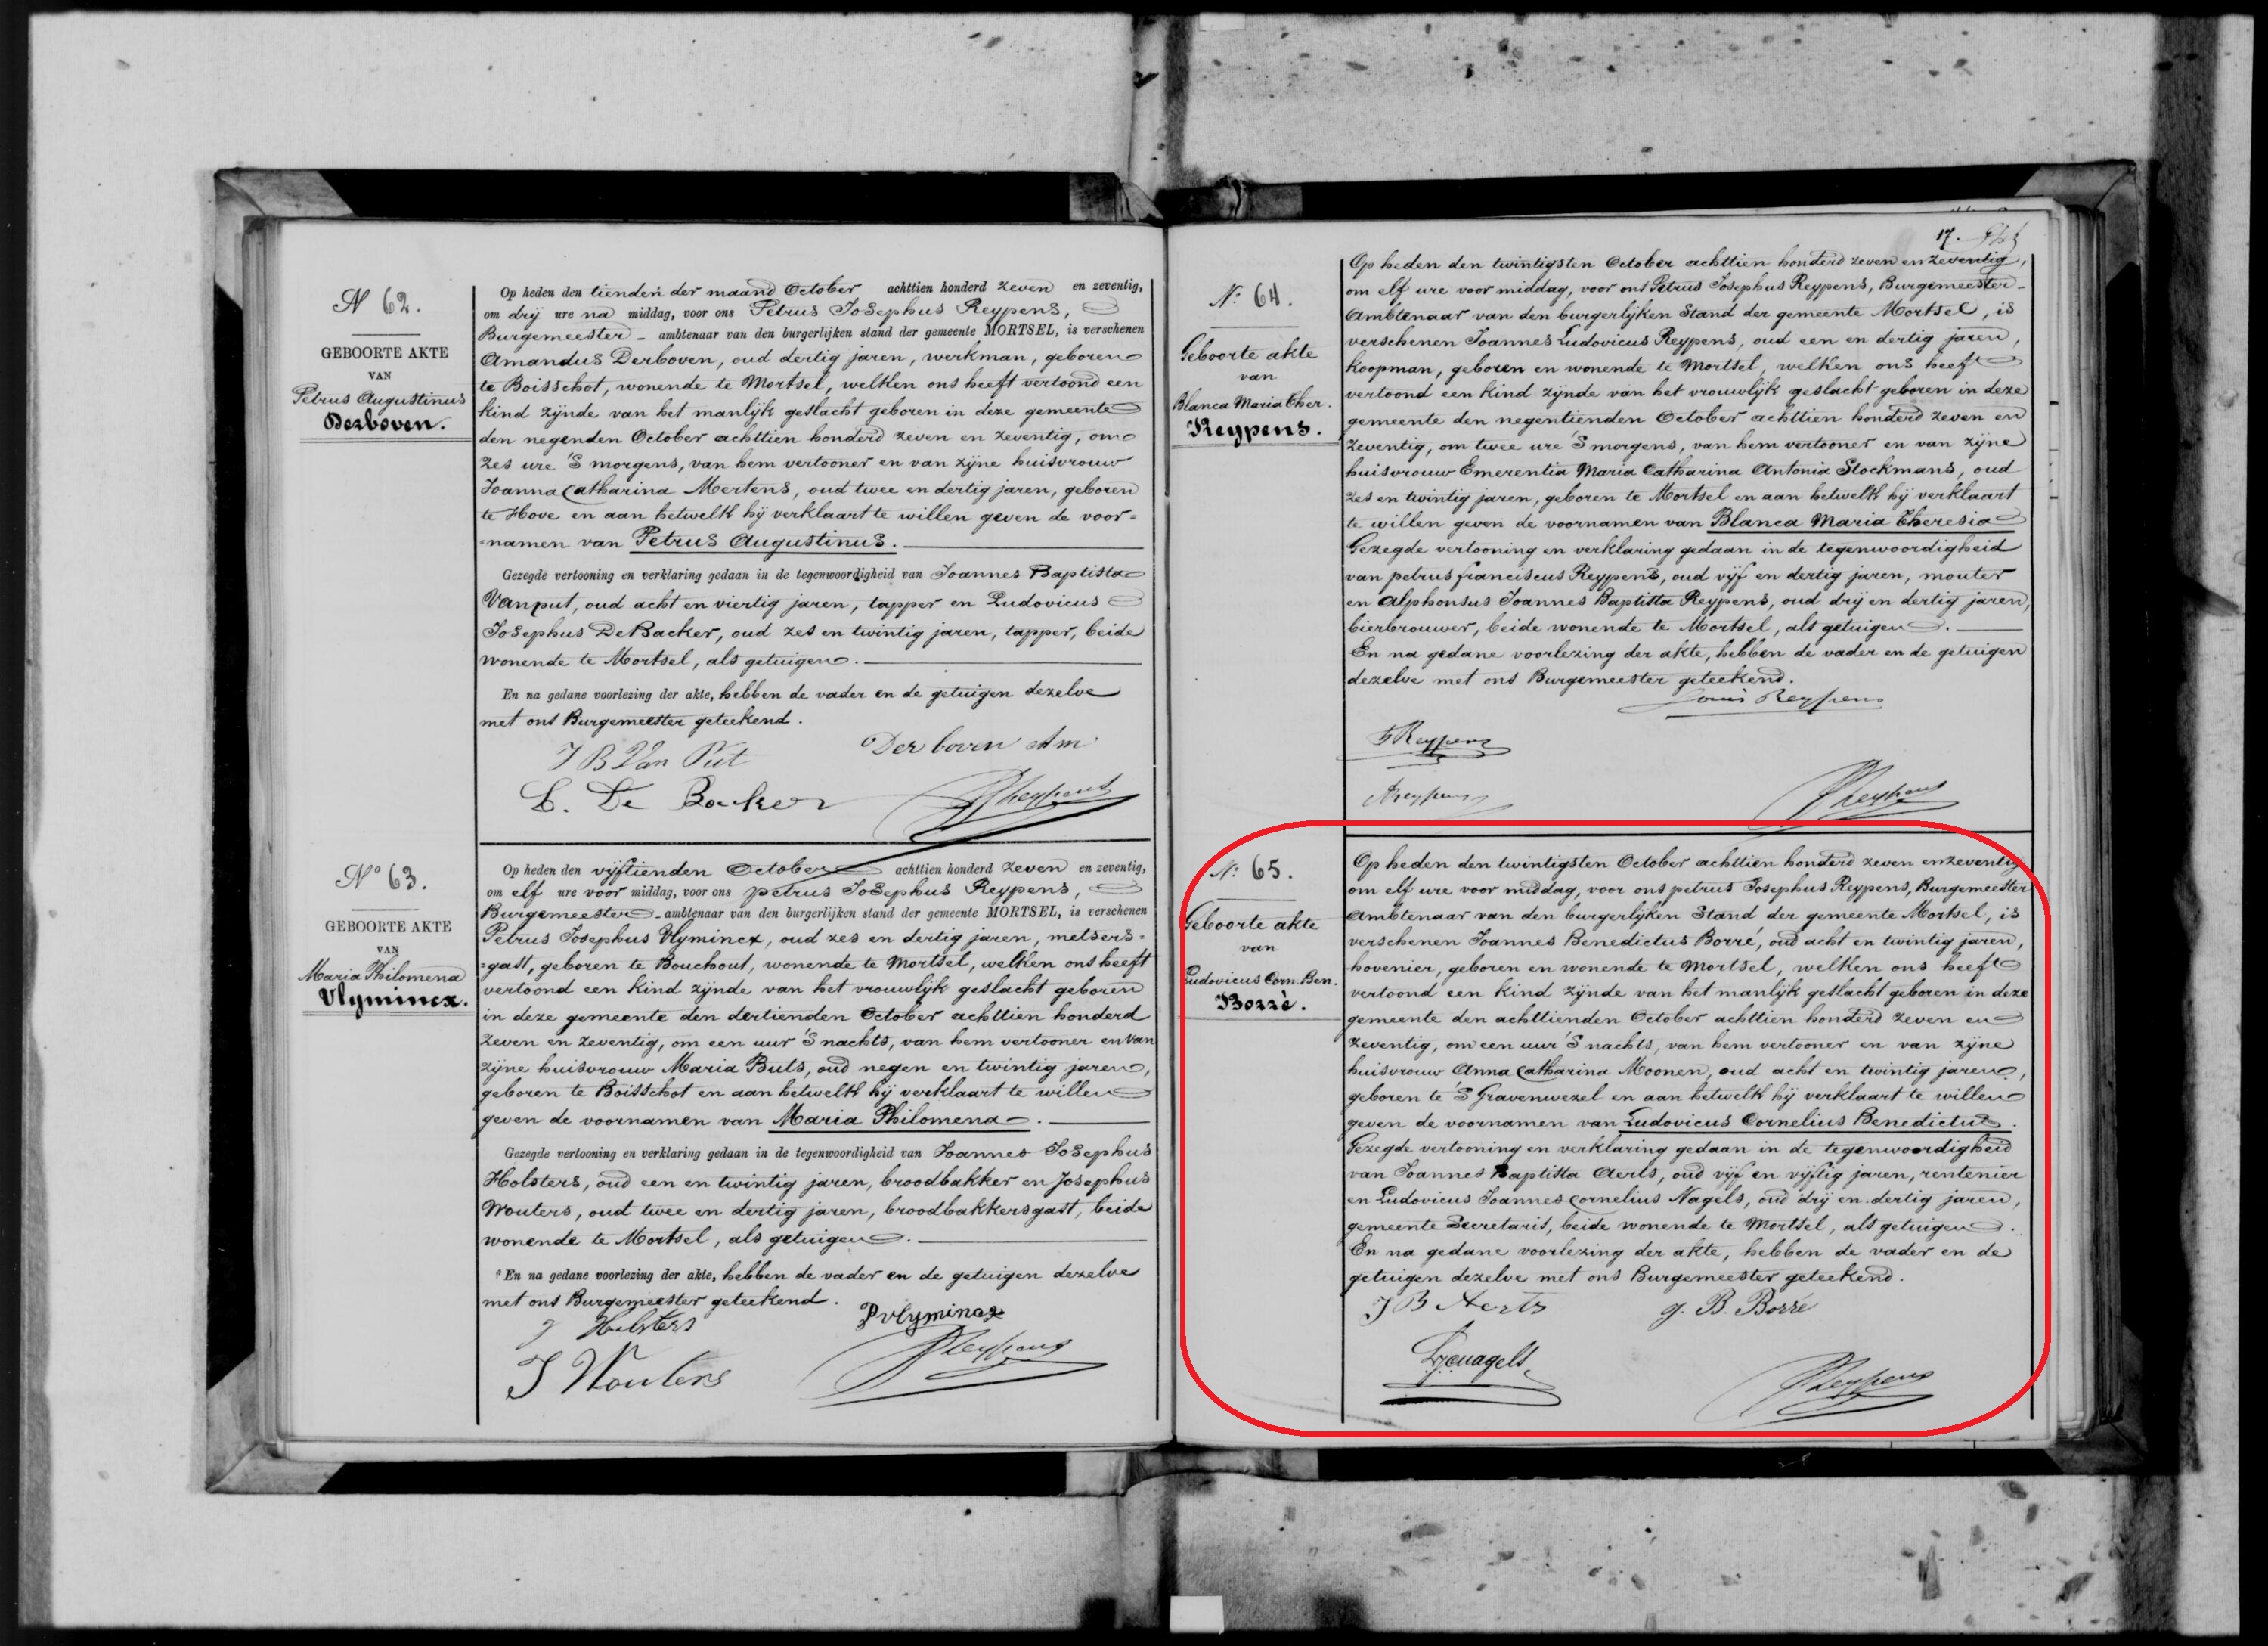 N 62.
GEBOORTE AKTE
VAN
Petrus Augustinus
Derboven.
Op heden den tienden der maand October achttien honderd zeven en zeventig,
om drij ure na middag, voor ons Petrus Josephus Reypens,
Burgemeester - ambtenaar van den burgerlijken stand der gemeente MORTSEL, is verschenen
Amandus Derboven, oud dertig jaren, werkman, geboren
te Boisschot, wonende te Mortsel, welken ons heeft vertoond een
kind zijnde van het manlijk geslacht geboren in deze gemeente
den negenden October achttien honderd zeven en zeventig, om
zes ure 'S morgens, van hem vertooner en van zijne huisvrouw
Joanna Catharina Mertens, oud twee en dertig jaren, geboren
te Hove en aan hetwelk hij verklaart te willen geven de voor=
=namen van Petrus Augustinus.
Gezegde vertooning en verklaring gedaan in de tegenwoordigheid van Joannes Baptista
Vanput, oud acht en viertig jaren, tapper en Ludovicus
Josephus De Backer, oud zes en twintig jaren, tapper, beide
wonende te Mortsel, als getuigen.
En na gedane voorlezing der akte, hebben de vader en de getuigen dezelve
met ons Burgemeester geteekend.
J B Van Put
Derboven Am
L. De Backer
PReypens
N° 63.
GEBOORTE AKTE
VAN
Maria Philomena
Vlymincx.
Op heden den vijftienden October achttien honderd zeven en zeventig,
om elf ure voor middag, voor ons petrus Josephus Reypens,
Burgemeester - ambtenaar van den burgerlijken stand der gemeente MORTSEL, is verschenen
Petrus Josephus Vlymincx, oud zes en dertig jaren, metsers=
=gast, geboren te Bouchout, wonende te Mortsel, welken ons heeft
vertoond een kind zijnde van het vrouwlijk geslacht geboren
in deze gemeente den dertienden October achttien honderd
zeven en zeventig, om een uur 'S nachts, van hem vertooner en van
zijne huisvrouw Maria Buts, oud negen en twintig jaren,
geboren te Boisschot en aan hetwelk hij verklaart te willen
geven de voornamen van Maria Philomena.
Gezegde vertooning en verklaring gedaan in de tegenwoordigheid van Joannes Josephus
Holsters, oud een en twintig jaren, broodbakker en Josephus
Wouters, oud twee en dertig jaren, broodbakkersgast, beide
wonende te Mortsel, als getuigen.
En na gedane voorlezing der akte, hebben de vader en de getuigen dezelve
met ons Burgemeester geteekend.
J Holsters
P vlymincx
J Wouters
PReypens
17.
N° 64.
Geboorte akte
van
Blanca Maria Ther.
Reypens.
Op heden den twintigsten October achttien honderd zeven en zeventig,
om elf ure voor middag, voor ons Petrus Josephus Reypens, Burgemeester -
Ambtenaar van den burgerlijken Stand der gemeente Mortsel, is
verschenen Joannes Ludovicus Reypens, oud een en dertig jaren,
koopman, geboren en wonende te Mortsel, welken ons heeft
vertoond een kind zijnde van het vrouwlijk geslacht geboren in deze
gemeente den negentienden October achttien honderd zeven en
zeventig, om twee ure 'S morgens, van hem vertooner en van zijne
huisvrouw Emerentia Maria Catharina Antonia Stockmans, oud
zes en twintig jaren, geboren te Mortsel en aan hetwelk hij verklaart
te willen geven de voornamen van Blanca Maria Theresia
Gezegde vertooning en verklaring gedaan in de tegenwoordigheid
van petrus franciscus Reypens, oud vijf en dertig jaren, mouter
en Alphonsus Joannes Baptista Reypens, oud drij en dertig jaren,
bierbrouwer, beide wonende te Mortsel, als getuigen.
En na gedane voorlezing der akte, hebben de vader en de getuigen
dezelve met ons Burgemeester geteekend.
Louis Reypens
F Reypens
A Reypens
PReypens
N° 65.
Geboorte akte
van
Ludovicus Corn. Ben.
Borré.
Op heden den twintigsten October achttien honderd zeven en zeventig
om elf ure voor middag, voor ons petrus Josephus Reypens, Burgemeester
Ambtenaar van den burgerlijken Stand der gemeente Mortsel, is
verschenen Joannes Benedictus Borré, oud acht en twintig jaren,
hovenier, geboren en wonende te Mortsel, welken ons heeft
vertoond een kind zijnde van het manlijk geslacht geboren in deze
gemeente den achttienden October achttien honderd zeven en
zeventig, om een uur 'S nachts, van hem vertooner en van zijne
huisvrouw Anna Catharina Moonen, oud acht en twintig jaren,
geboren te 'S Gravenwezel en aan hetwelk hij verklaart te willen
geven de voornamen van Ludovicus Cornelius Benedictus.
Gezegde vertooning en verklaring gedaan in de tegenwoordigheid
van Joannes Baptista Aerts, oud vijf en vijftig jaren, rentenier
en Ludovicus Joannes Cornelius Nagels, oud drij en dertig jaren,
gemeente Secretaris, beide wonende te Mortsel, als getuigen.
En na gedane voorlezing der akte, hebben de vader en de
getuigen dezelve met ons Burgemeester geteekend.
J B Aerts
J. B. Borré
LJCNagels
PReypens